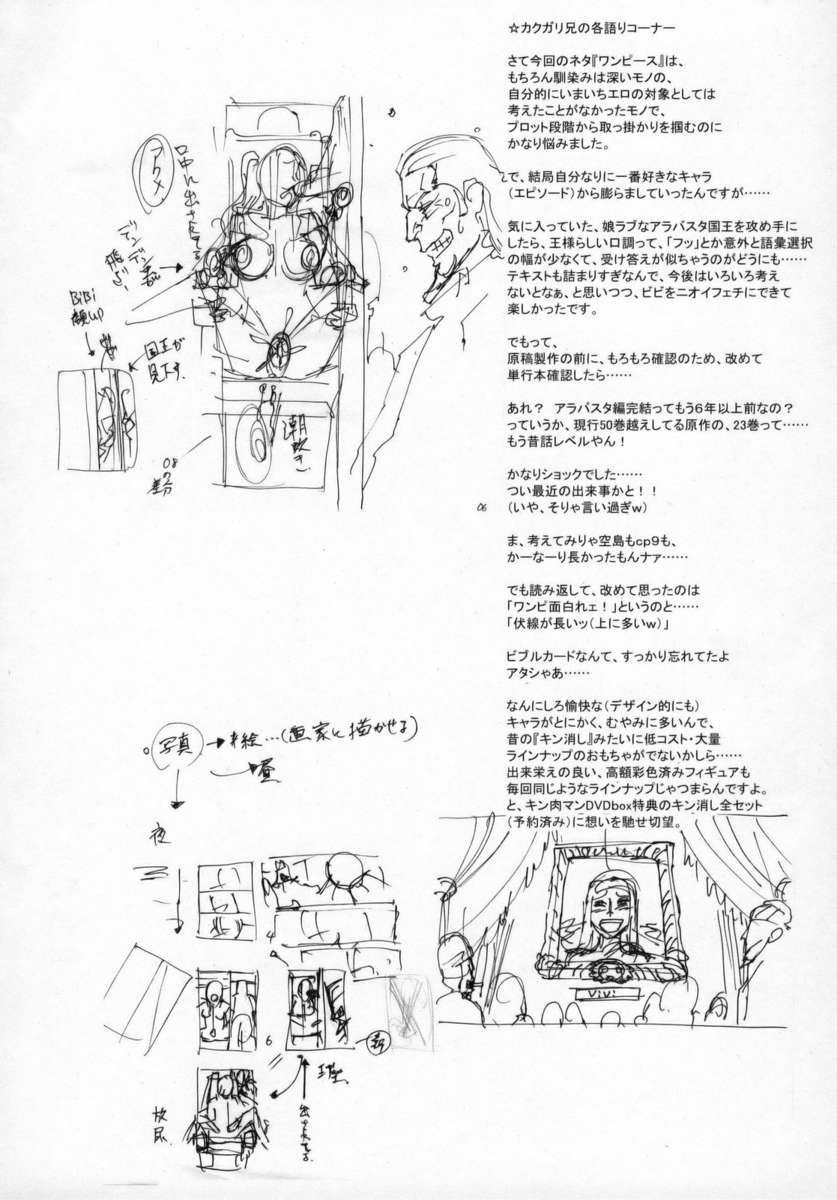 ☆カクガリ兄の各語りコーナー
さて今回のネタ『ワンピース』は、
もちろん馴染みは深いモノの、
自分的にいまいちエロの対象としては
考えたことがなかったモノで、
プロット段階から取っ掛かりを掴むのに
かなり悩みました。
で、結局自分なりに一番好きなキャラ
（エピソード）から膨らましていったんですが……
気に入っていた、娘ラブなアラバスタ国王を攻め手に
したら、王様らしい口調って、「フッ」とか意外と語彙選択
の幅が少なくて、受け答えが似ちゃうのがどうにも……
テキストも詰まりすぎなんで、今後はいろいろ考え
ないとなぁ、と思いつつ、ビビをニオイフェチにできて
楽しかったです。
でもって、
原稿製作の前に、もろもろ確認のため、改めて
単行本確認したら……
あれ？　アラバスタ編完結ってもう６年以上前なの？
っていうか、現行50巻越えしてる原作の、23巻って……
もう昔話レベルやん！
かなりショックでした……
つい最近の出来事かと！！
（いや、そりゃ言い過ぎｗ）
ま、考えてみりゃ空島もcp９も、
かーなーり長かったもんナァ……
でも読み返して、改めて思ったのは
「ワンピ面白れェ！」というのと……
「伏線が長いッ（上に多いｗ）」
ビブルカードなんて、すっかり忘れてたよ
アタシゃあ……
なんにしろ愉快な（デザイン的にも）
キャラがとにかく、むやみに多いんで、
昔の『キン消し』みたいに低コスト・大量
ラインナップのおもちゃがでないかしら……
出来栄えの良い、高額彩色済みフィギュアも
毎回同じようなラインナップじゃつまらんですよ。
と、キン肉マンDVDbox特典のキン消し全セット
（予約済み）に想いを馳せ切望。
アクメ
口中に出されてる
BiBi
国王が
見下す
潮吹き
08
06
写真
→絵…（画家に描かせる）
昼
夜
4
6
出されてる
放尿
ViVi